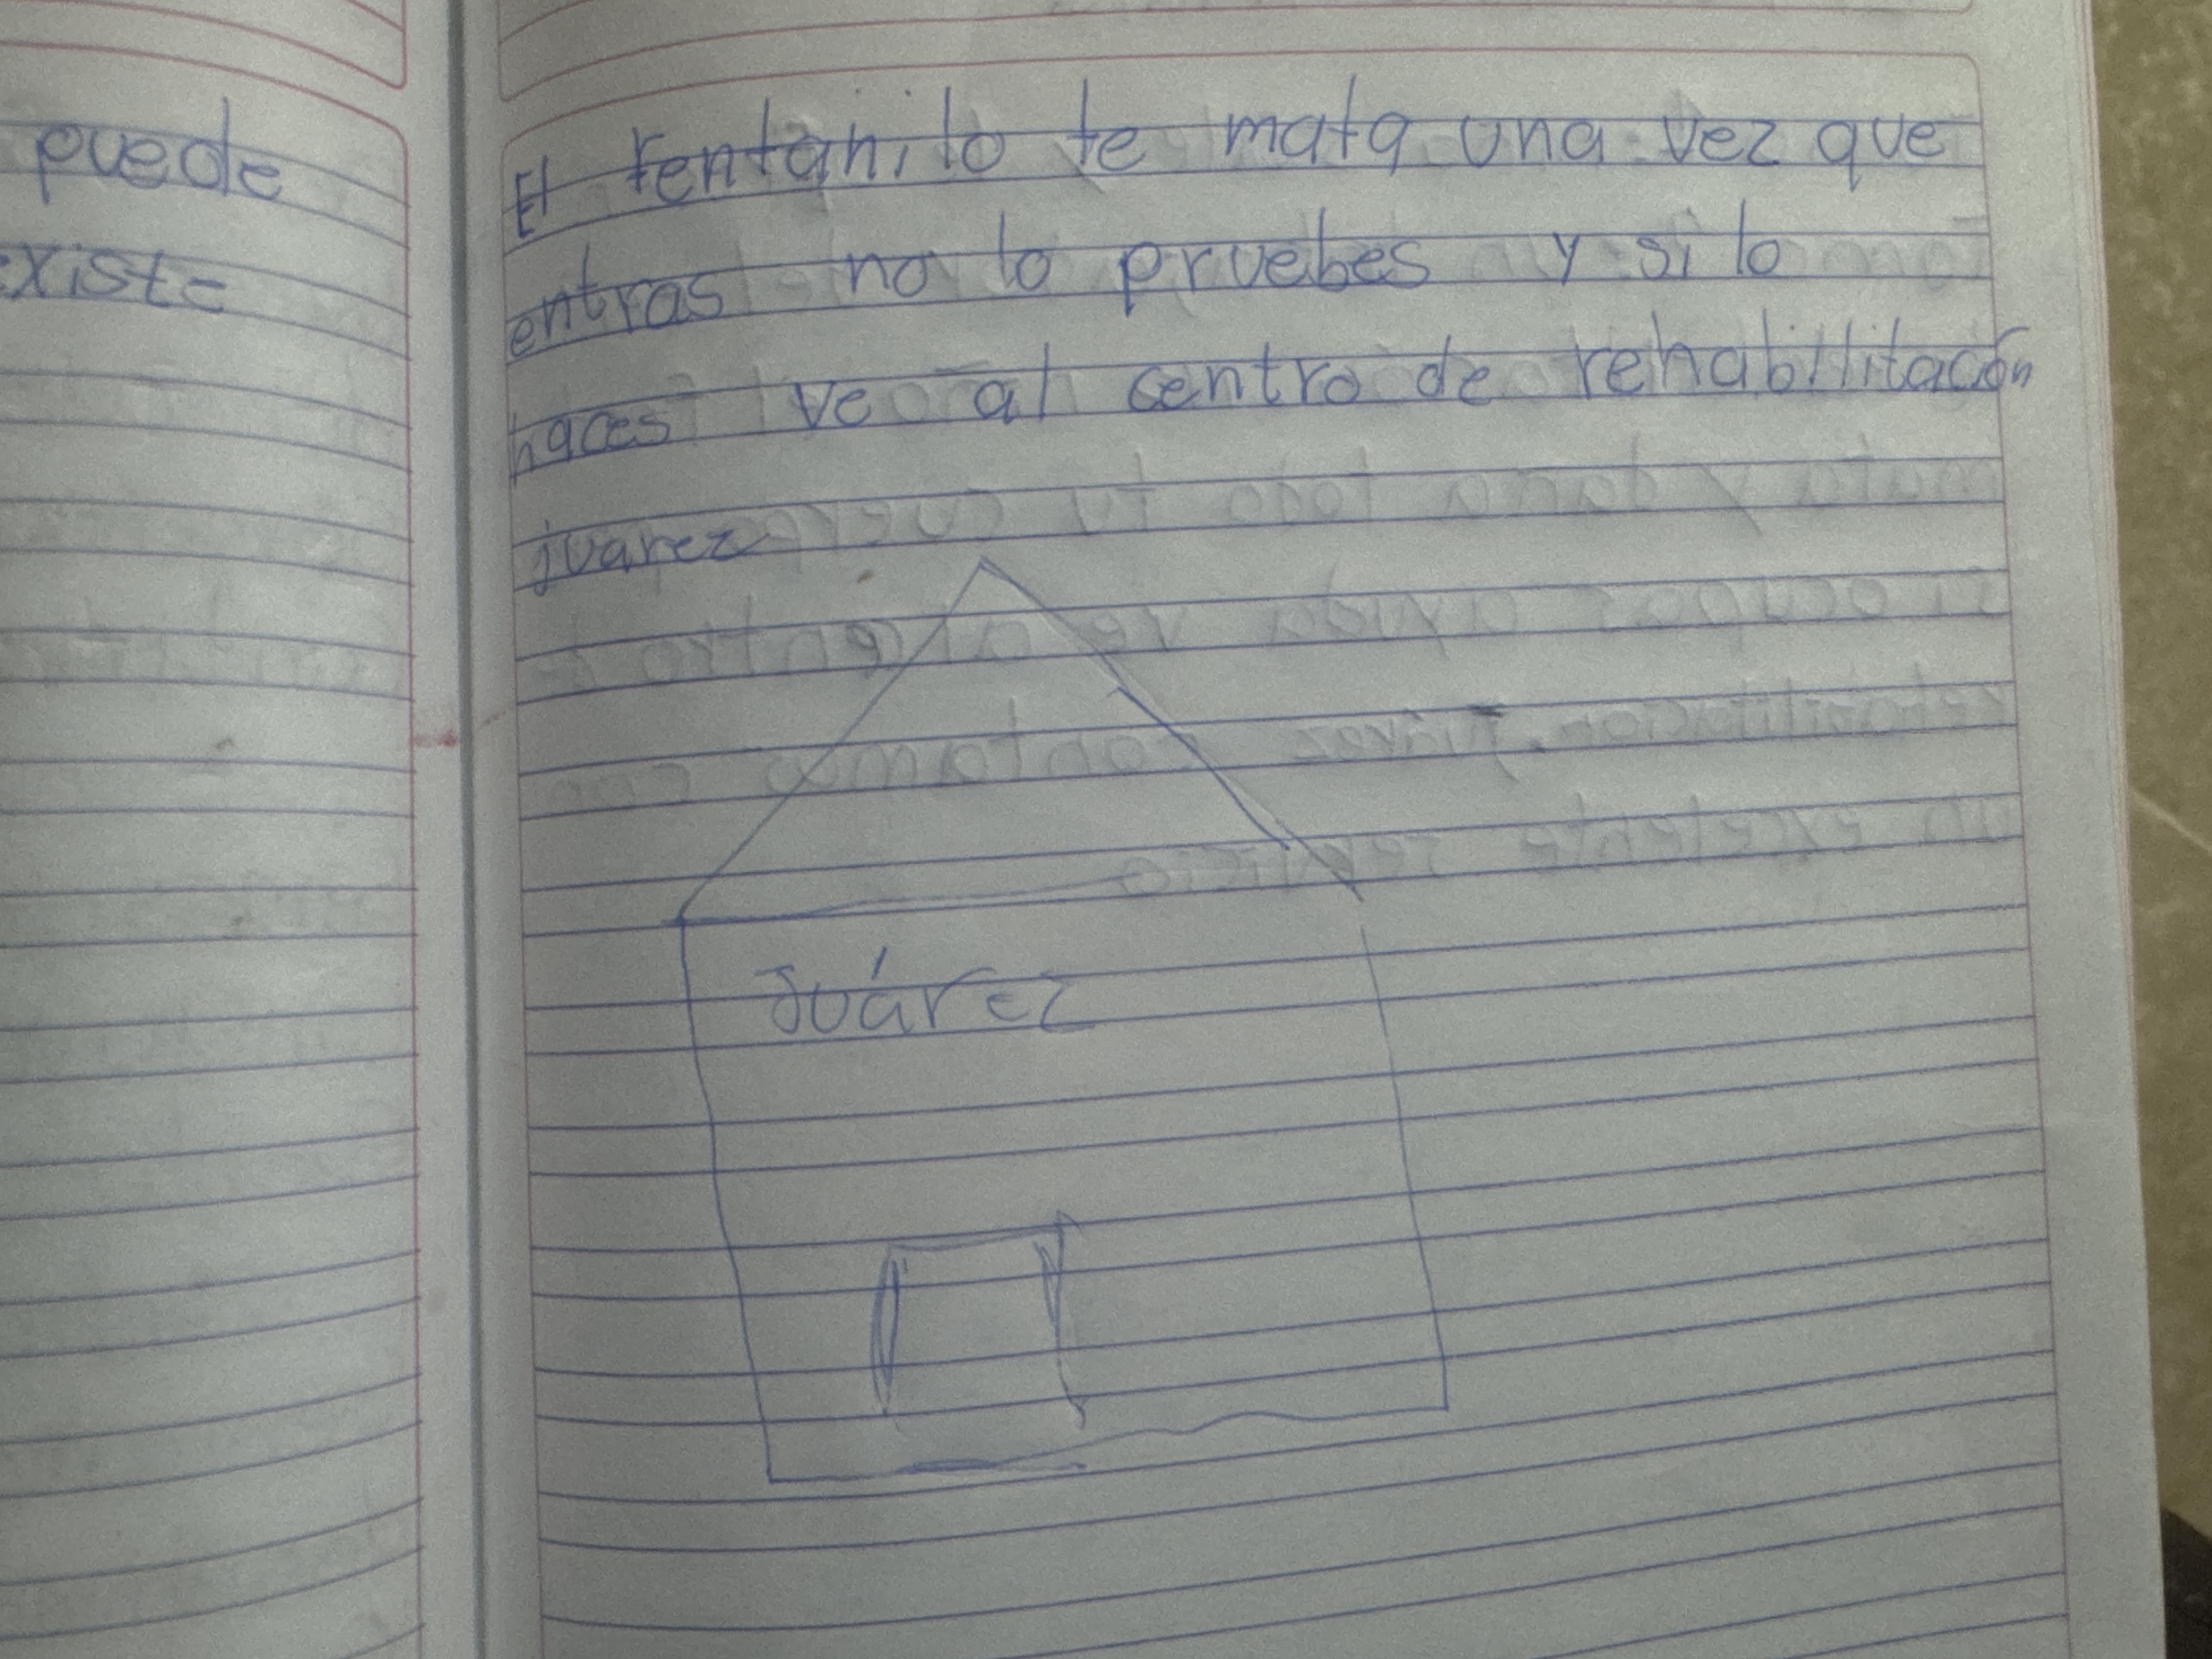 puede
existe
El fentanilo te mata una vez que
entras no lo pruebes y si lo
haces ve al centro de rehabilitación
juarez
Juárez